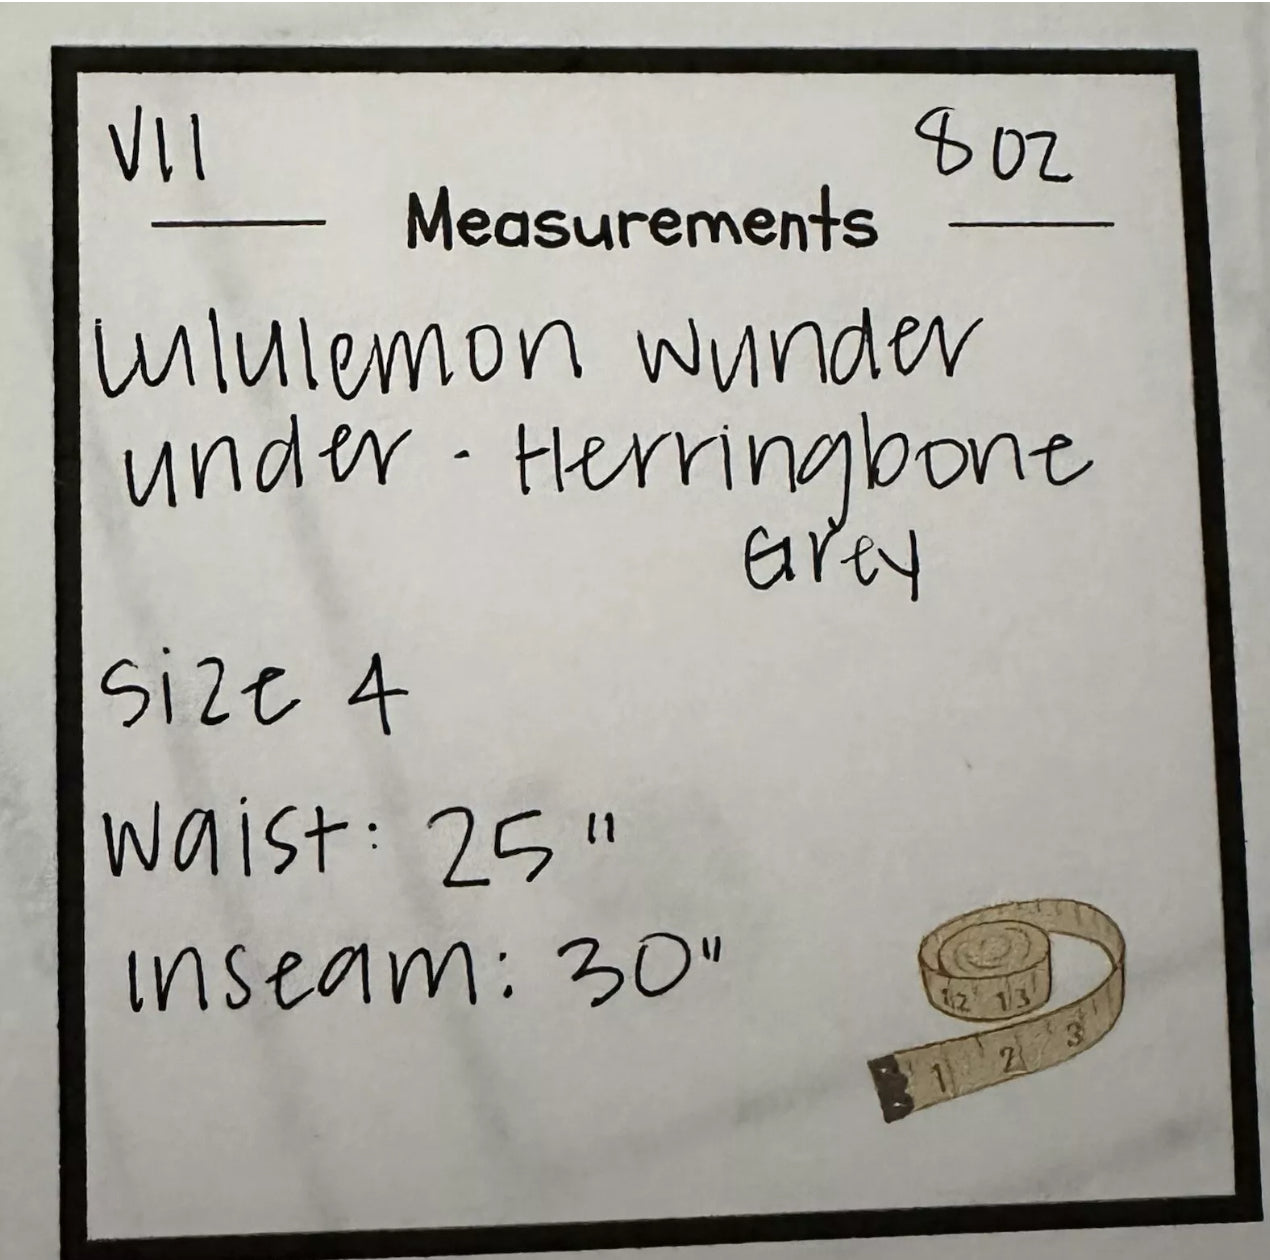 VII
8 oz
Measurements
lululemon wunder
under - Herringbone
Grey
size 4
waist: 25"
inseam: 30"
12 13
1 2 3